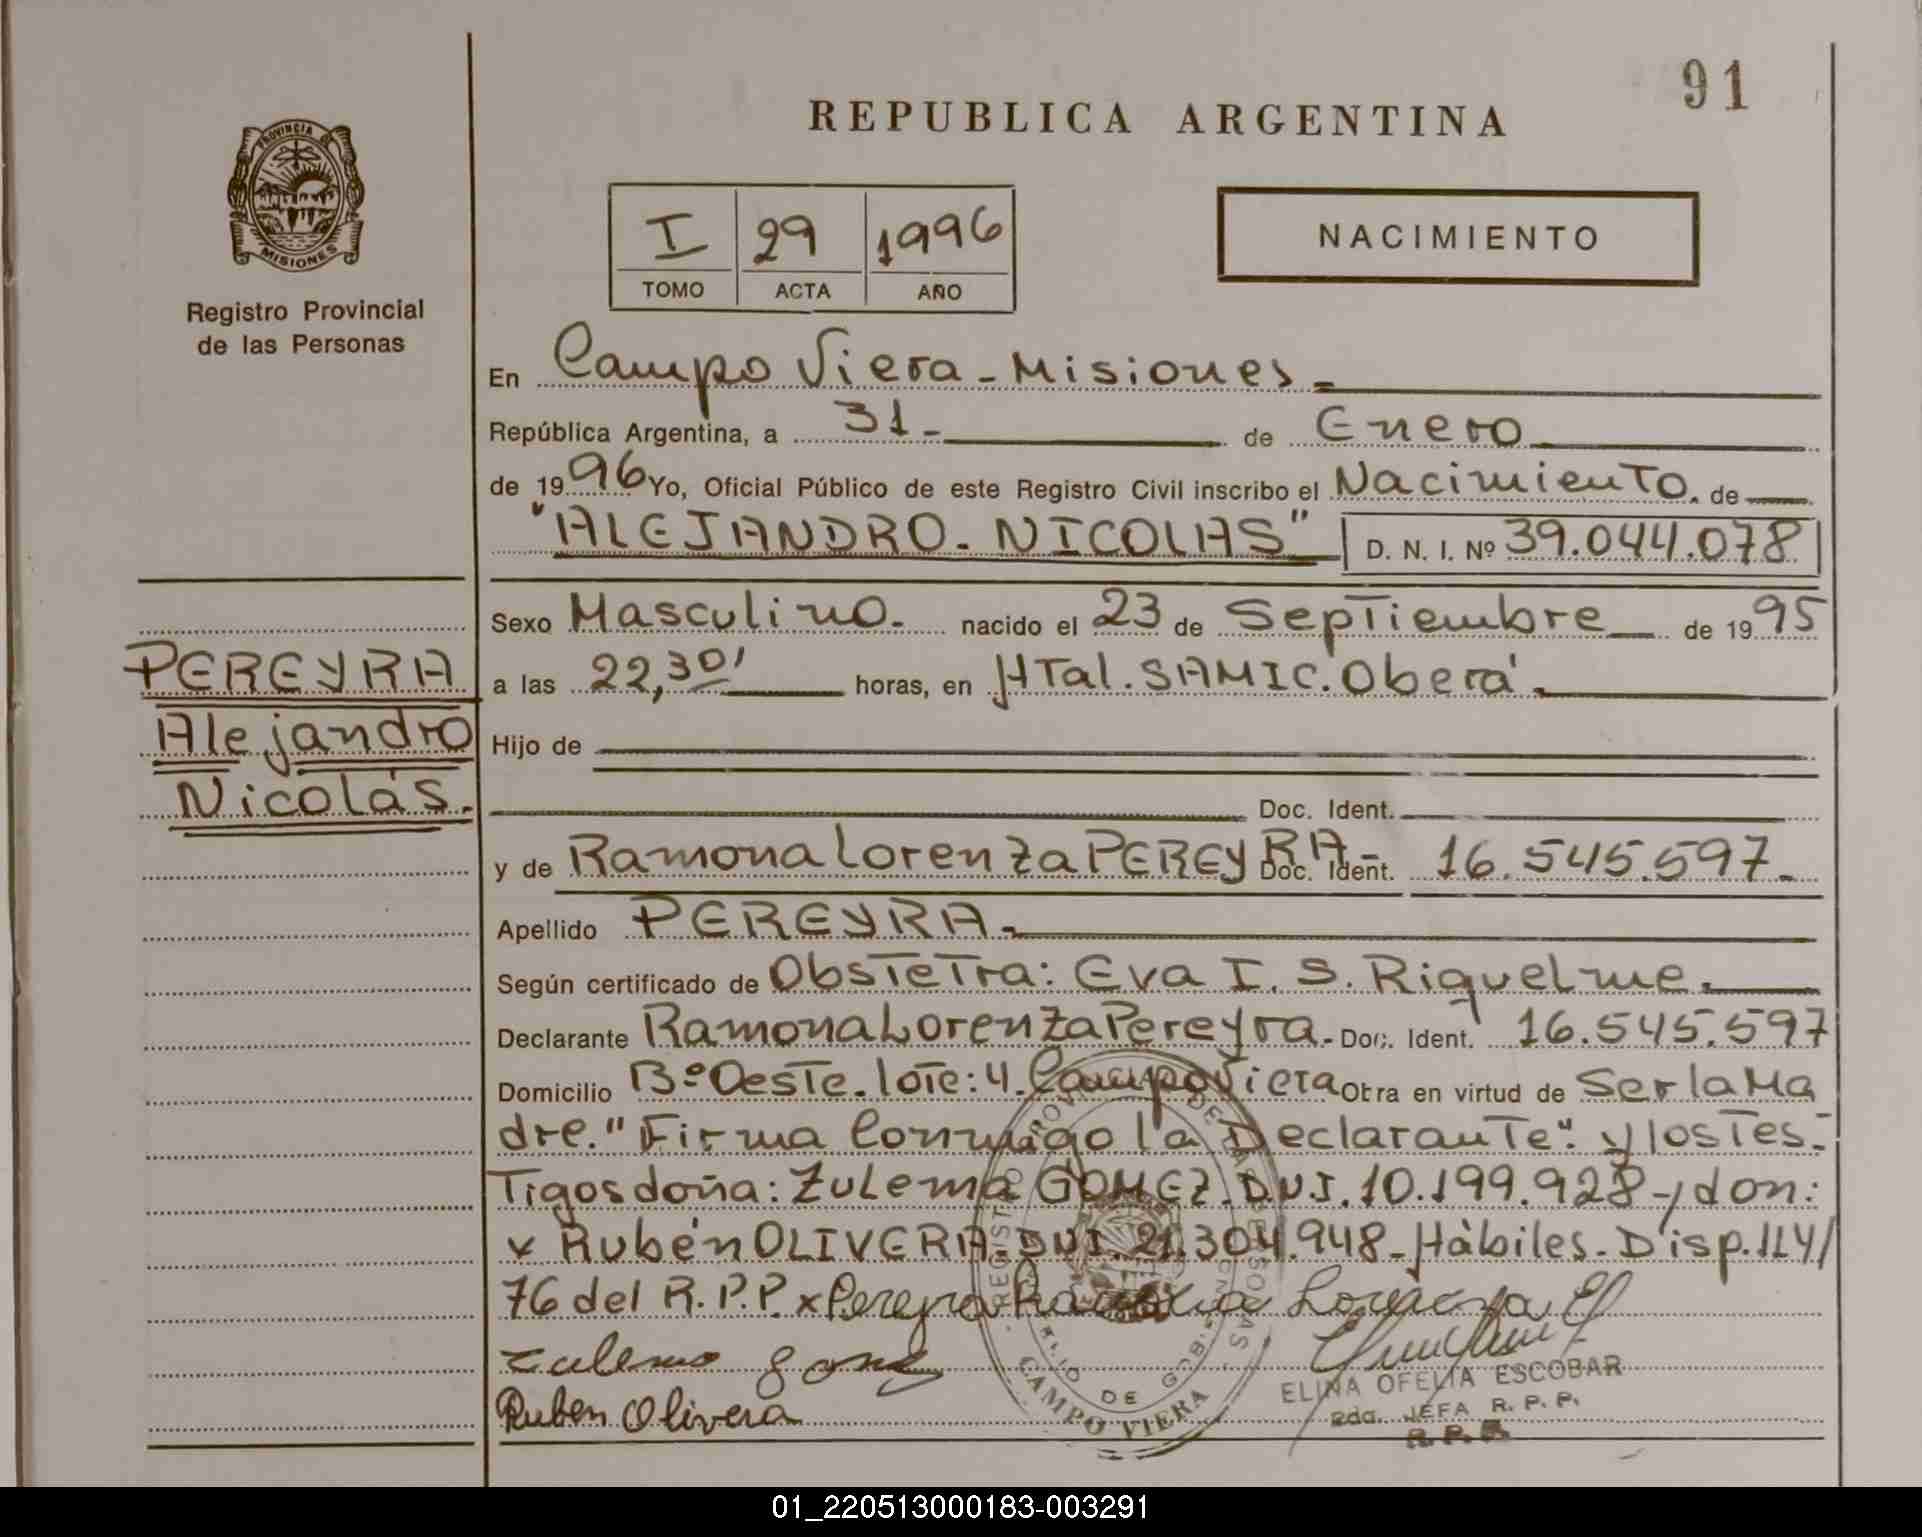 91
REPUBLICA ARGENTINA
PROVINCIA
MISIONES
Registro Provincial
de las Personas
I 29 1996
TOMO ACTA AÑO
NACIMIENTO
En Campo Viera - Misiones -
República Argentina, a 31 - de Enero
de 1996 Yo, Oficial Público de este Registro Civil inscribo el Nacimiento. de
"ALEJANDRO - NICOLAS" D. N. I. Nº 39.044.078
Sexo Masculino. nacido el 23 de Septiembre de 1995
PEREYRA
Alejandro
Nicolás.
a las 22,30' horas, en Htal. SAMIC. Oberá.
Hijo de
Doc. Ident.
y de Ramona Lorenza PEREYRA - Doc. Ident. 16.545.597 -
Apellido PEREYRA -
Según certificado de Obstetra: Eva I. S. Riquelme.
Declarante Ramona Lorenza Pereyra - Doc. Ident. 16.545.597
Domicilio Bº Oeste. lote: 4. Campo Viera Obra en virtud de Ser la Ma
dre." Firma Conmigo la Declarante". y los Tes-
Tigos doña: Zulema GOMEZ. D.N.I. 10.199.928 - y don:
x Rubén OLIVERA. DNI. 21.304.948 - Hàbiles - Disp. 114/
76 del R.P.P. x Pereyra Ramona Lorenza
Zulema Gomez
Ruben Olivera
REGISTRO PROVINCIAL DE LAS PERSONAS
DE GOBIERNO
CAMPO VIERA
ELINA OFELIA ESCOBAR
2da. JEFA R. P. P.
R. P. P.
01_220513000183-003291